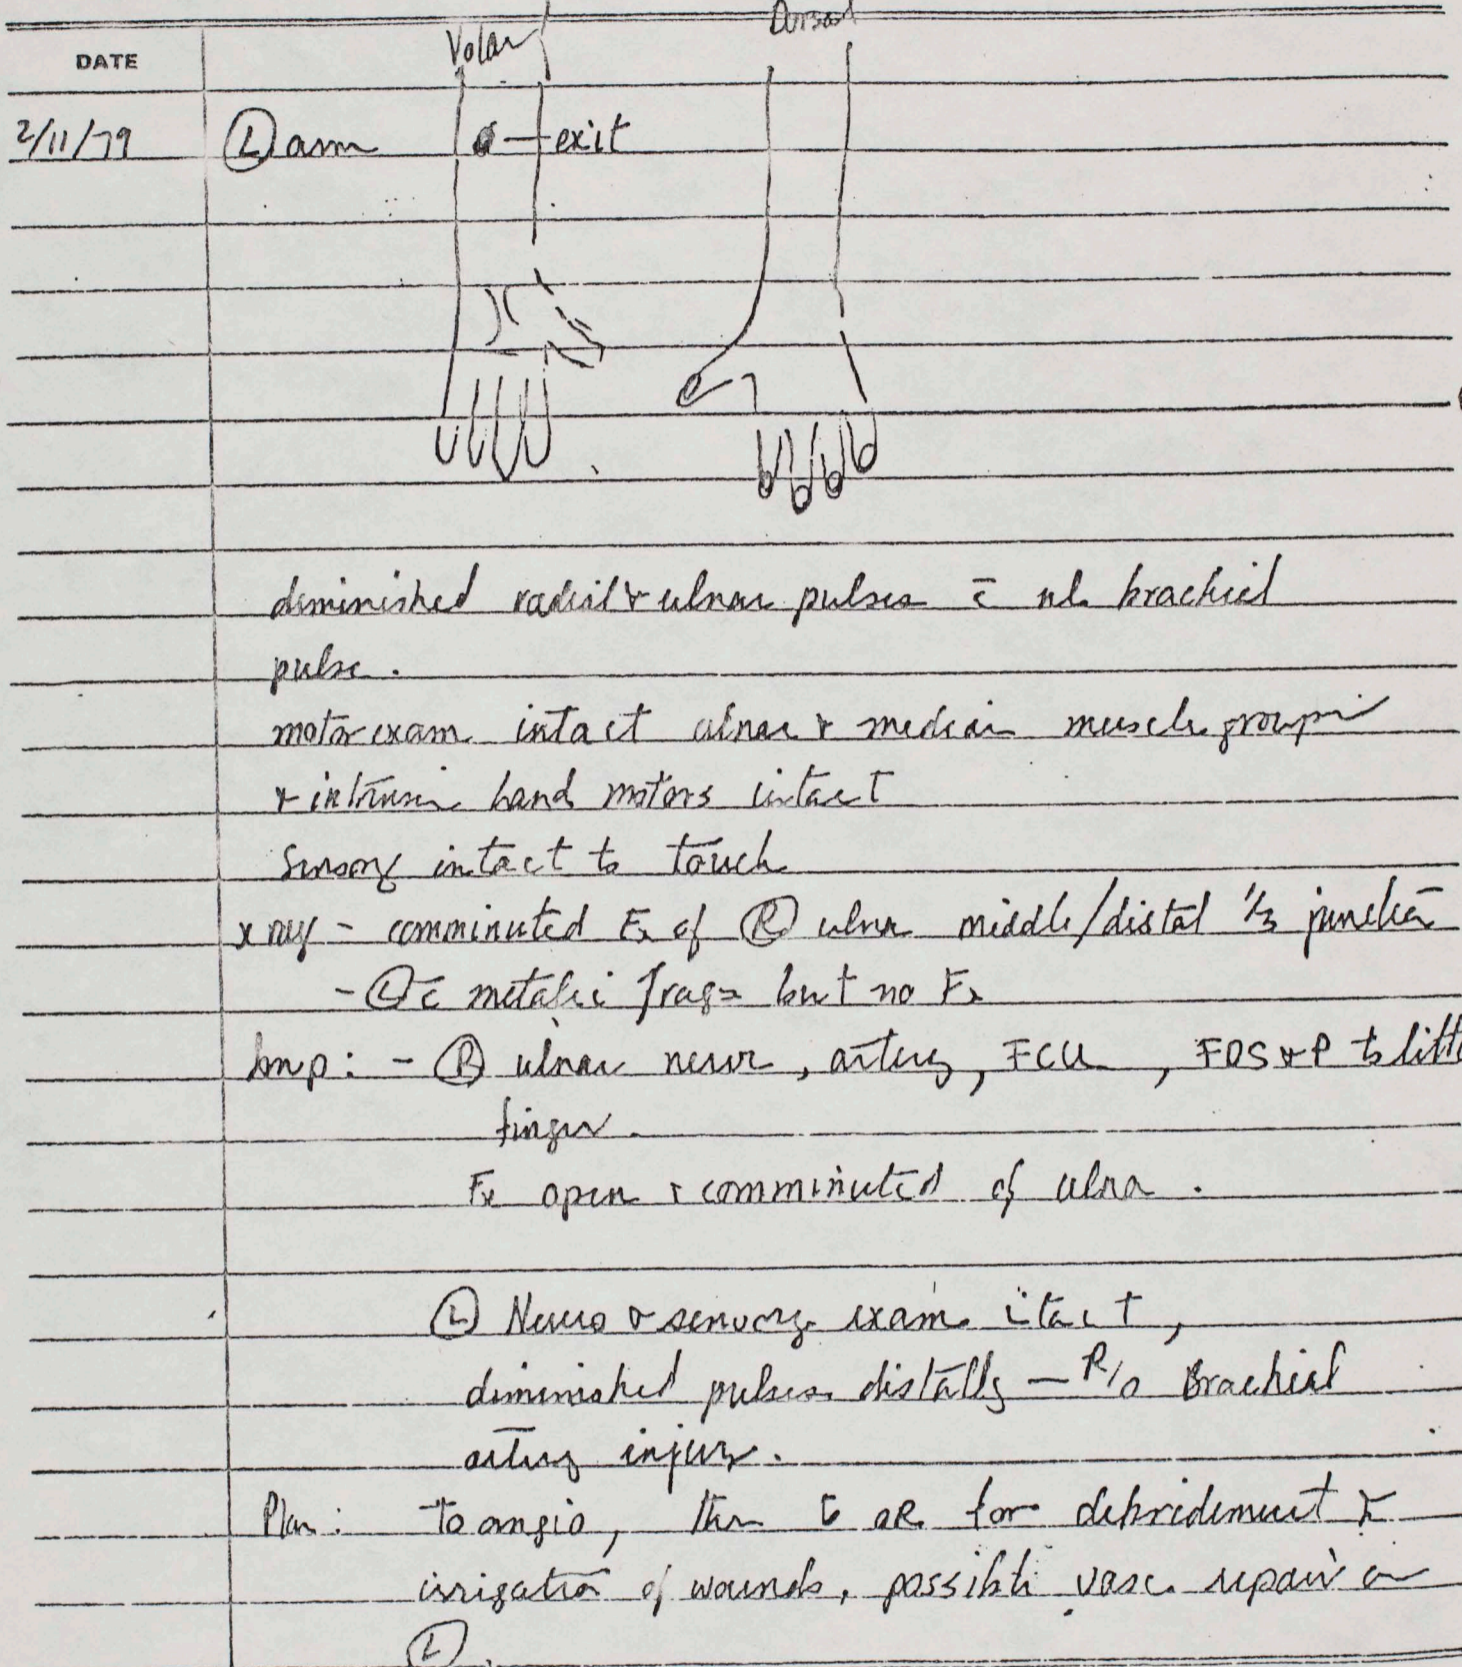 Volar Dorsal
DATE
2/11/79 Ⓛ arm exit
diminished radial & ulnar pulses c̄ nl. brachial
pulse.
motor exam intact ulnar & median muscle groups
& intrinsic hand motors intact
Sensory intact to touch
x ray - comminuted Fx of Ⓡ ulna middle/distal 1/3 junction
- Ⓛ c̄ metallic frags but no Fx
Imp: - Ⓡ ulnar nerve, artery, FCU, FDS & P to little
finger.
Fx open & comminuted of ulna.
Ⓛ Neuro & sensory exam itact,
diminished pulses distally - R/o Brachial
artery injury.
Plan: To angio, then to OR for debridement &
irrigation of wounds, possible vasc. repair on
Ⓛ